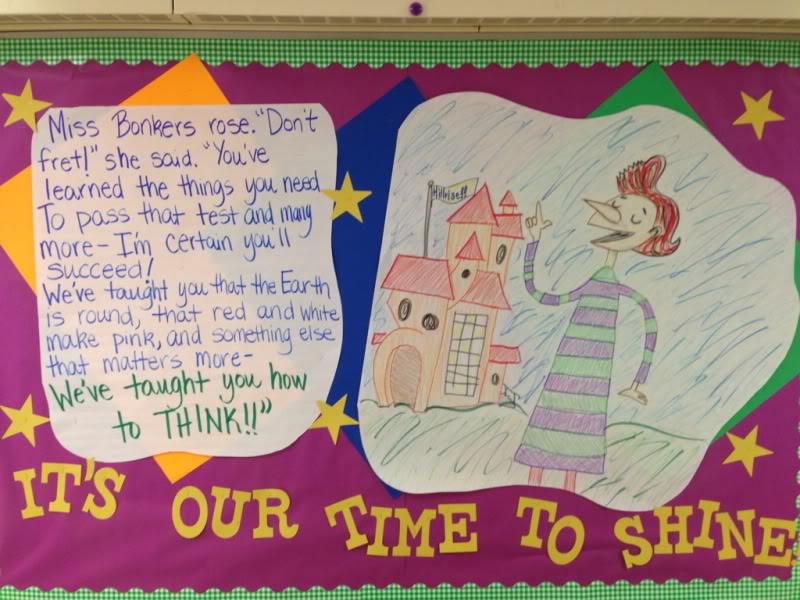 Miss Bonkers rose. "Don't
fret!" she said. "You've
learned the things you need
To pass that test and many
more - I'm certain you'll
succeed!
We've taught you that the Earth
is round, that red and white
make pink, and something else
that matters more -
We've taught you how
to THINK!!"
IT'S OUR TIME TO SHINE!